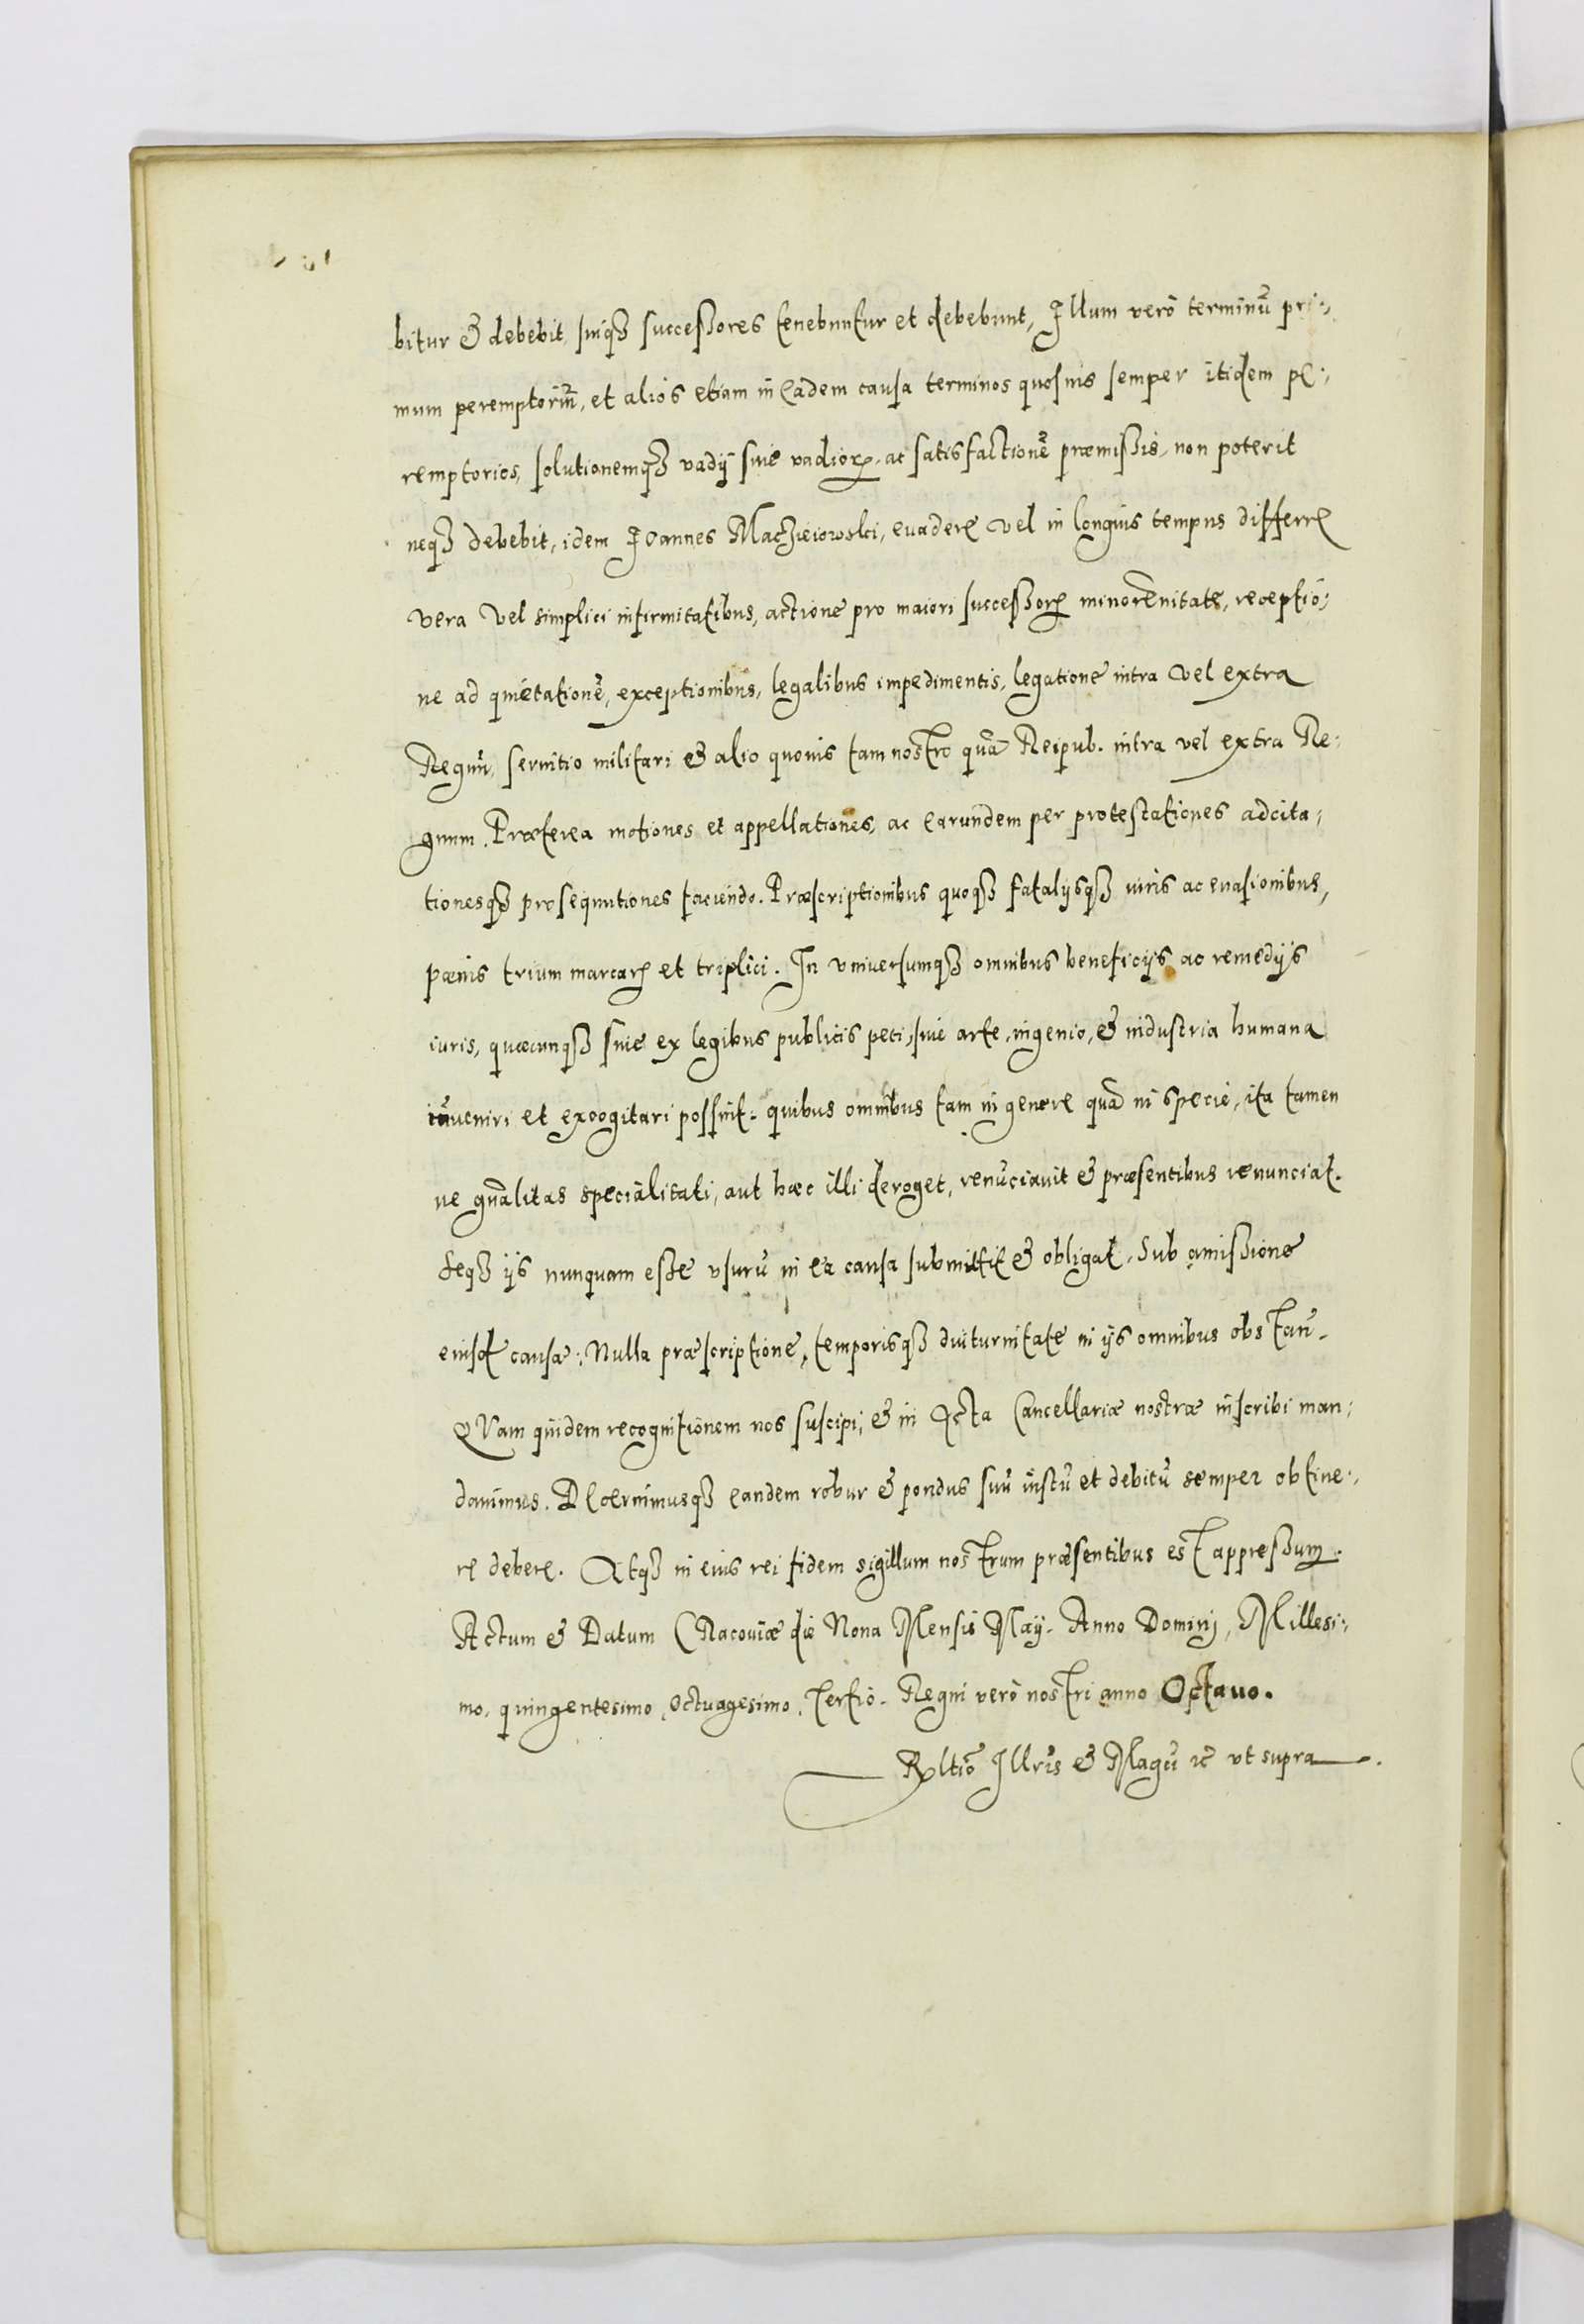 bitur & debebit, suiqꝫ successores tenebuntur et debebunt, Illum verò terminū pri:
mum peremptoriū, et alios etiam in eadem causa terminos quosuis semper itidem pe:
remptorios, solutionemqꝫ vadij siue vadioꝝ, ac satisfactionē præmissis, non poterit
neqꝫ debebit, idem Ioannes Maczieiowski, euadere vel in longius tempus differre
vera vel simplici infirmitatibus, actione pro maiori successoꝝ minorennitate, receptio:
ne ad quietationē, exceptionibus, legalibus impedimentis, legatione intra vel extra
Regnū, seruitio militari & alio quouis tam nostro quā Reipub. intra vel extra Re:
gnum. Præterea motiones et appellationes, ac earundem per protestationes adcita:
tionesqꝫ prosequutiones faciendo. Præscriptionibus quoqꝫ fatalijsqꝫ iuris ac euasionibus,
pœnis trium marcaꝝ et triplici. In vniuersumqꝫ omnibus beneficijs ac remedijs
iuris, quæcunqꝫ siue ex legibus publicis peti, siue arte, ingenio, & industria humana
inueniri et excogitari possint: quibus omnibus tam in genere quā in specie, ita tamen
ne gn̄alitas specialitati, aut hæc illi deroget, renūciauit & præsentibus renunciat.
Seqꝫ ijs nunquam esse vsurū in ea causa submittit & obligat. Sub amissione
eiusdē causæ: Nulla præscriptione, temporisqꝫ diuturnitate in ijs omnibus obstan̄.
QVam quidem recognitionem nos suscipi, & in Acta Cancellariæ nostræ inscribi man:
dauimus. Decernimusqꝫ eandem robur & pondus suū iustū et debitū semper obtine:
re debere. Atqꝫ in eius rei fidem sigillum nostrum præsentibus est appressum.
Actum & Datum CRacouiæ die Nona Mensis Maij. Anno Domini, Millesi:
mo, quingentesimo, octuagesimo, Tertio. Regni verò nostri anno Octauo.
Rltiō Illris & Magci ꝛc vt supra.